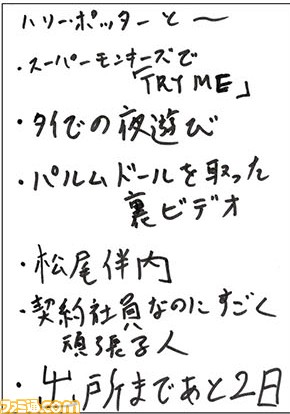 ハリー・ポッターと〜
・スーパーモンキーズで
「TRY ME」
・タイでの夜遊び
・パルムドールを取った
裏ビデオ
・松尾伴内
・契約社員なのにすごく
頑張る人
・出所まであと2日
ファミ通.com